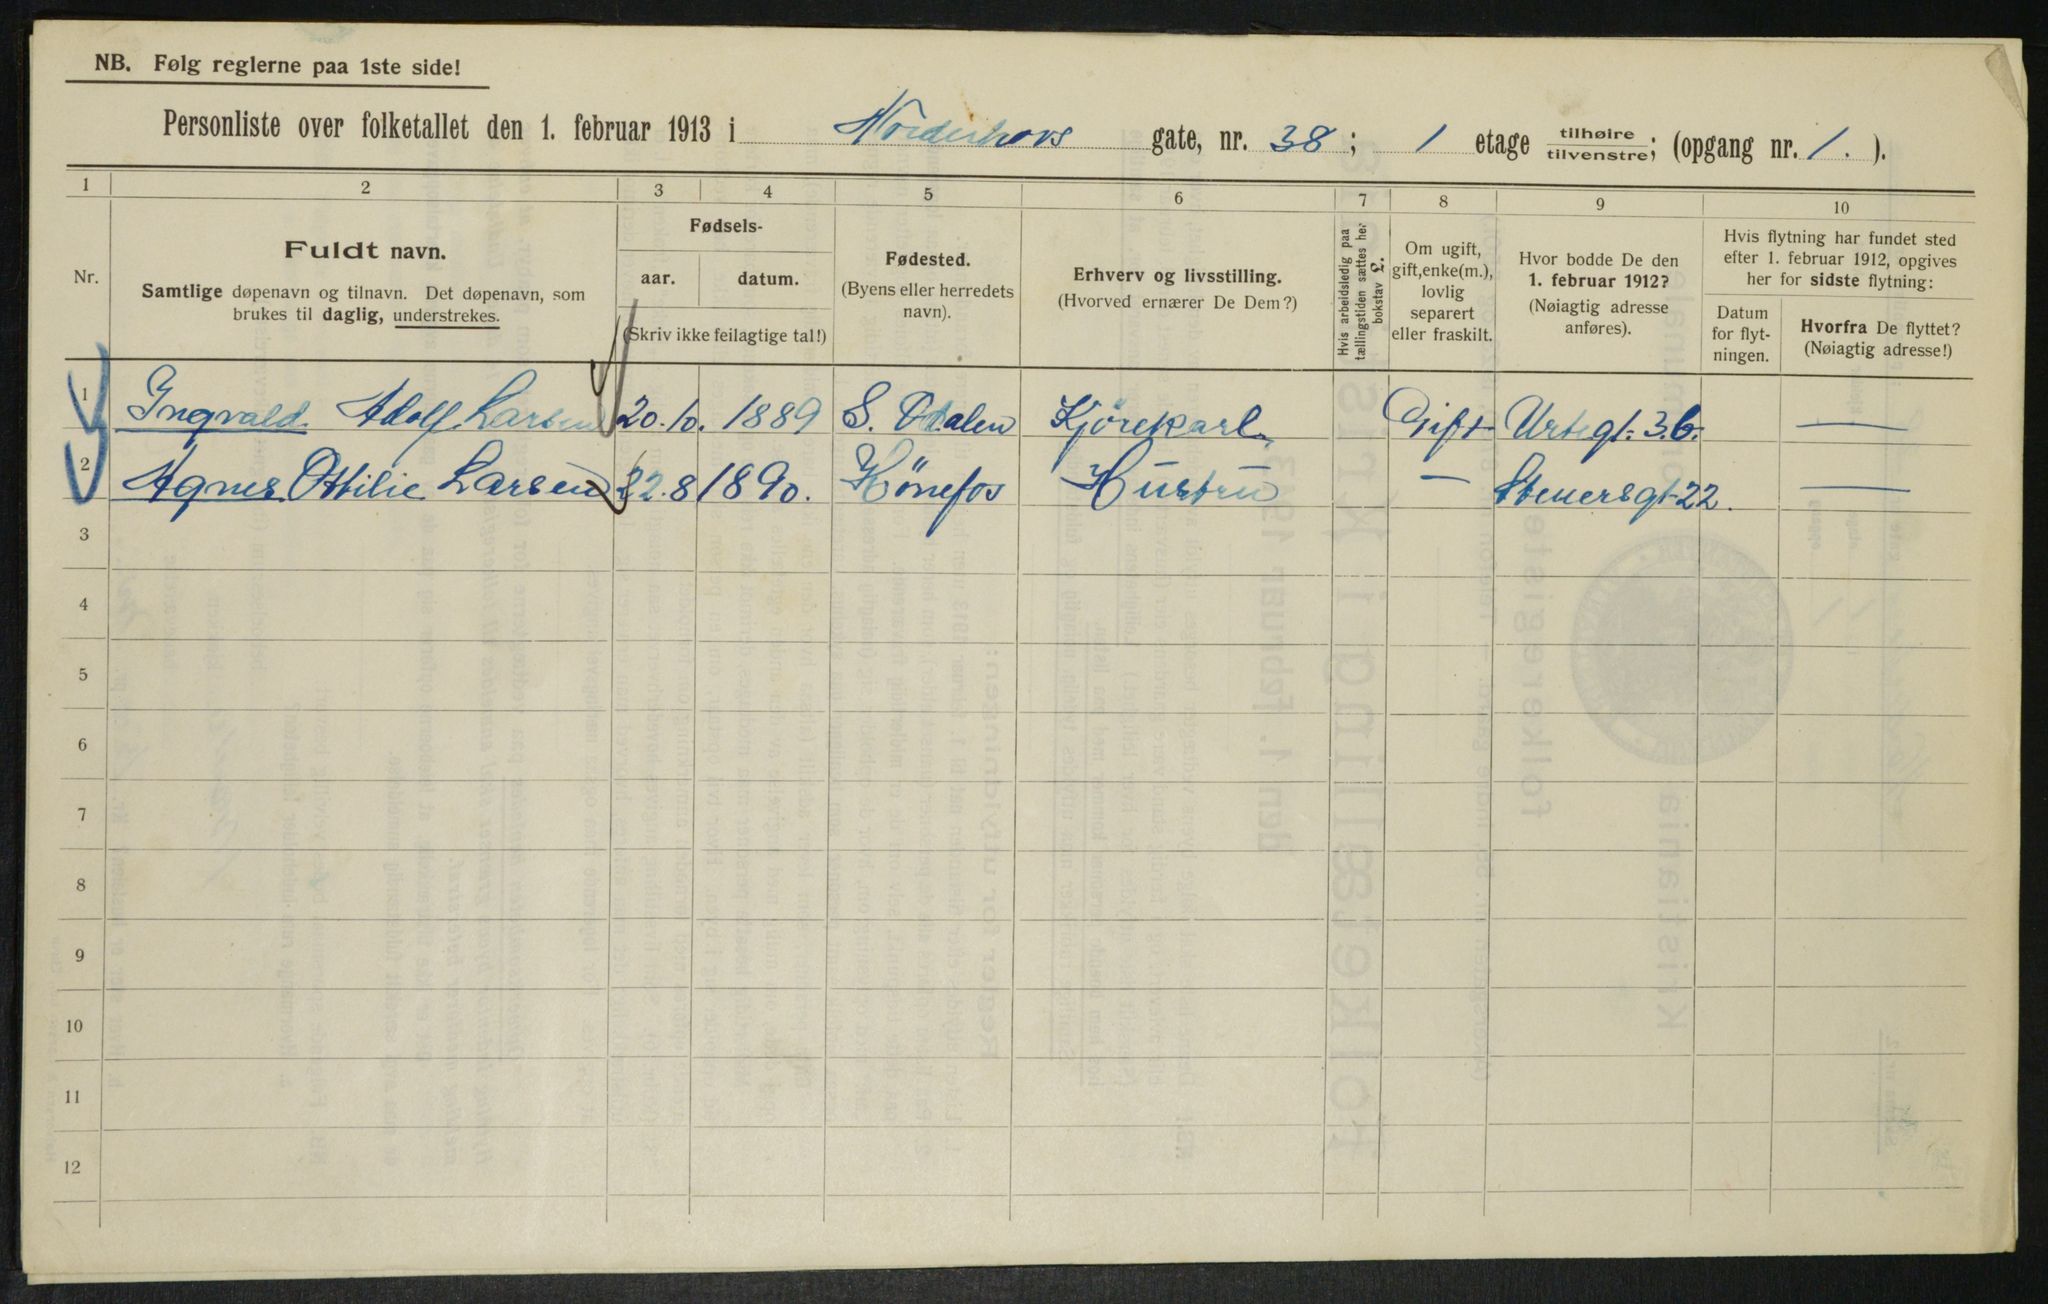 NB. Følg reglerne paa 1ste side!
Personliste over folketallet den 1. februar 1913 i Norderhovs gate, nr. 38; 1 etage tilhøire/tilvenstre; (opgang nr. 1.).
1 2 3 4 5 6 7 8 9 10
Nr.
Fuldt navn.
Samtlige døpenavn og tilnavn. Det døpenavn, som
brukes til daglig, understrekes.
Fødsels-
aar. datum.
(Skriv ikke feilagtige tal!)
Fødested.
(Byens eller herredets
navn).
Erhverv og livsstilling.
(Hvorved ernærer De Dem?)
Hvis arbeidsledig paa
tællingstiden sættes her
bokstav L.
Om ugift,
gift, enke(m.),
lovlig
separert
eller fraskilt.
Hvor bodde De den
1. februar 1912?
(Nøiagtig adresse
anføres).
Hvis flytning har fundet sted
efter 1. februar 1912, opgives
her for sidste flytning:
Datum
for flyt-
ningen.
Hvorfra De flyttet?
(Nøiagtig adresse!)
1 Ingvald Adolf Larsen 20.10. 1889 S. Odalen Kjørekarl Gift Urtegt. 36. —
2 Agnes Ottilie Larsen 22.8 1890. Hönefos Hustru — Steuersgt 22. —
3
4
5
6
7
8
9
10
11
12